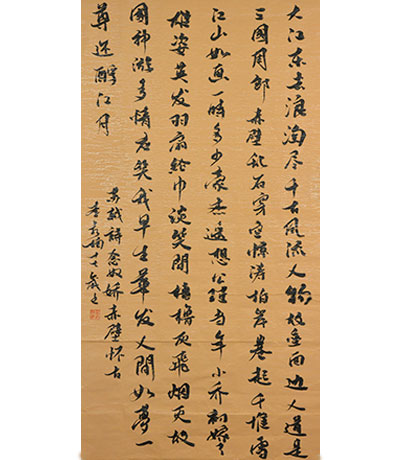 大江东去浪淘尽千古风流人物故垒西边人道是
三国周郎赤壁乱石穿空惊涛拍岸卷起千堆雪
江山如画一时多少豪杰遥想公瑾当年小乔初嫁了
雄姿英发羽扇纶巾谈笑间樯橹灰飞烟灭故
国神游多情应笑我早生华发人间如梦一
尊还酹江月
苏轼词念奴娇赤壁怀古